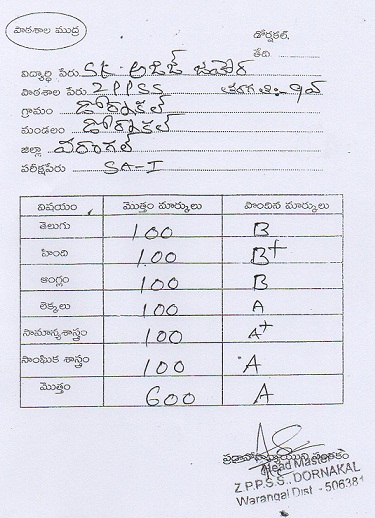 పాఠశాల ముద్ర
డోర్నకల్,
తేది
విద్యార్థి పేరు Sk అజిజ్ జహీర్
పాఠశాల పేరు ZPPSS తరగతి:- 9వ
గ్రామం డోర్నకల్
మండలం డోర్నకల్
జిల్లా వరంగల్
పరీక్షపేరు SA-I
విషయం మొత్తం మార్కులు పొందిన మార్కులు
తెలుగు 100 B
హింది 100 B+
ఆంగ్లం 100 B
లెక్కలు 100 A
సామాన్యశాస్త్రం 100 A+
సాంఘిక శాస్త్రం 100 A
మొత్తం 600 A
ప్రధానోపాధ్యాయుని సంతకం
Head Master
Z.P.P.S.S., DORNAKAL
Warangal Dist - 506381